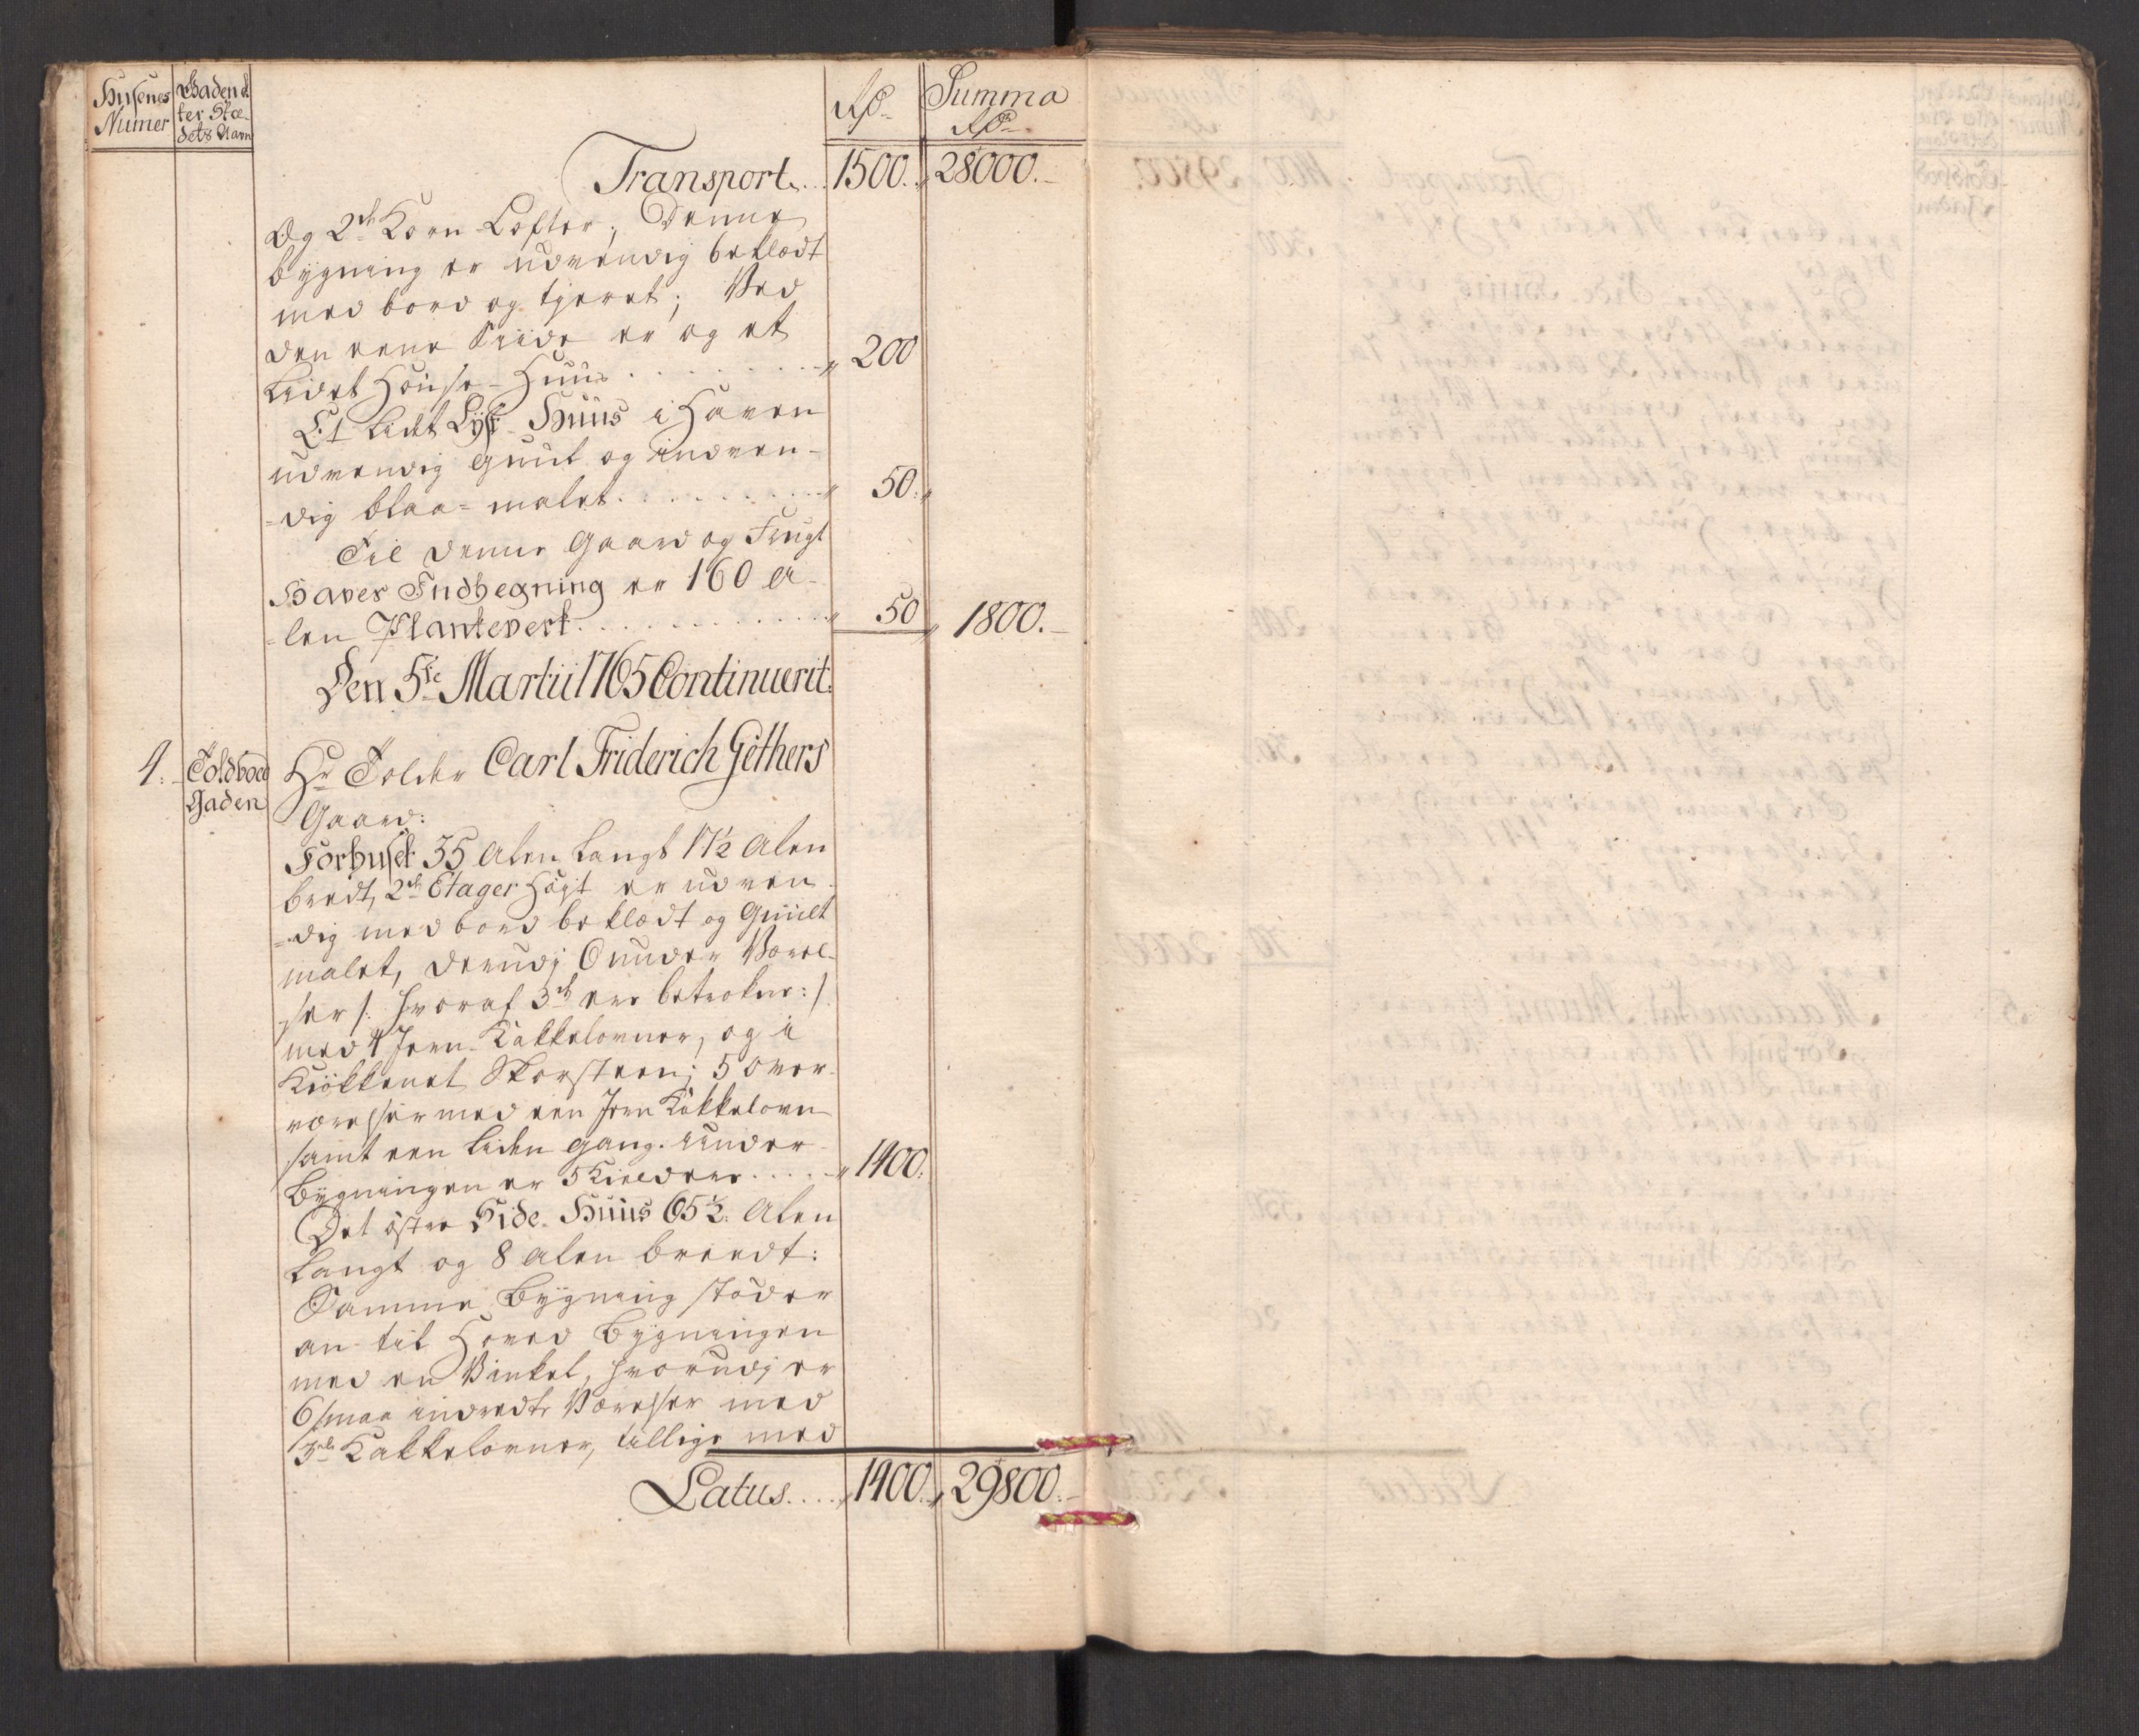 Husenes Numer
Gaden el
ter Stæ-
dets Navn
Rd.
Summa
Rd.
Transport... 1500. 28000.-
Og 2de Korn-Lofter; Denne
bygning er udvendig beklædt
med bord og tjæret; Ved
den eene Siide er og et
Lidet Hønse-Huus ........ 200
Et Lidet Lyst-Huus i Haven
udvendig Guult og indven-
-dig blaa-malet ......... 50.
Til denne Gaard og Frugt
Haves Indhegning er 160 a-
-len Plankeverk .......... 50 1800.-
Den 5te Martii 1765 Continuerit.
4. Toldboed Gaden Hr. Tolder Carl Friderich Gethers
Gaard:
Forhuset 35 Alen Langt 17½ Alen
bredt, 2de Etager Høyt er udven-
-dig med bord beklædt og Guult
malet, derudj 6 under Værel-
ser /: hvoraf 3de ere betrokne :/
med 4 Jern-Kakkelovner, og i
Kiøkkenet Skorsteen; 5 over-
værelser med een Jern Kakkelovn
samt een liden gang. under
Bygningen er 5 Kieldere ..... 1400.
Det østre Side-Huus 65½ Alen
Langt og 8 Alen breedt:
Samme Bygning støder
an til Hoved Bygningen
med en Vinkel, hvorudj er
6 smaa indredte Værelser med
3de Kakkelovner, tillige med
Latus.... 1400. 29800.-